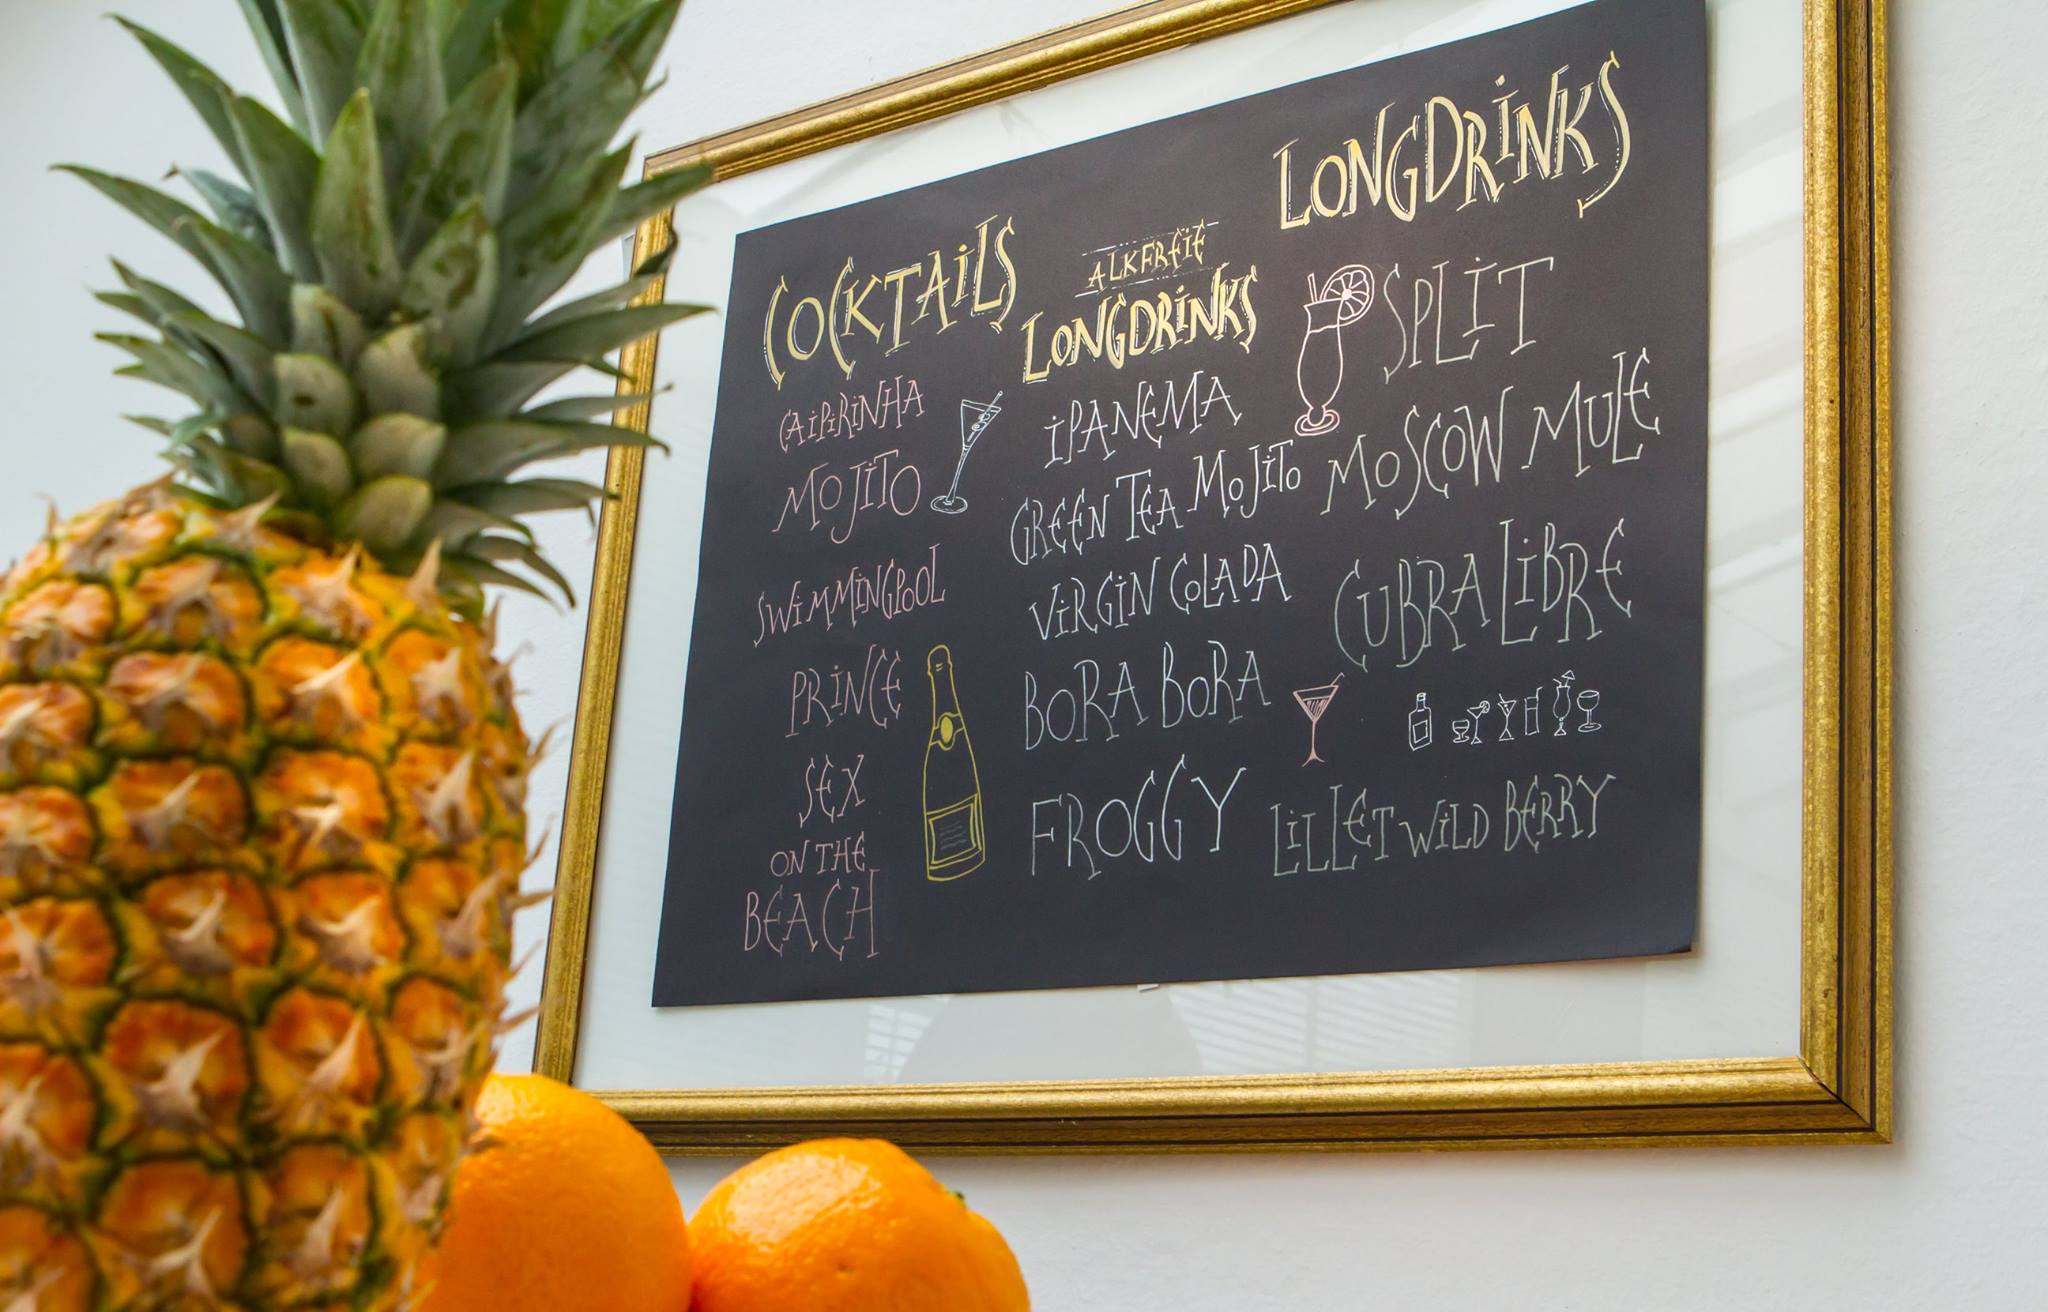 COCKTAILS
CAIPIRINHA
MOJITO
SWIMMINGPOOL
PRINCE
SEX
ON THE
BEACH
ALKFREIE
LONGDRINKS
IPANEMA
GREEN TEA MOJITO
VIRGIN COLADA
BORA BORA
FROGGY
LONGDRINKS
SPLIT
MOSCOW MULE
CUBRA LIBRE
LILLET WILD BERRY